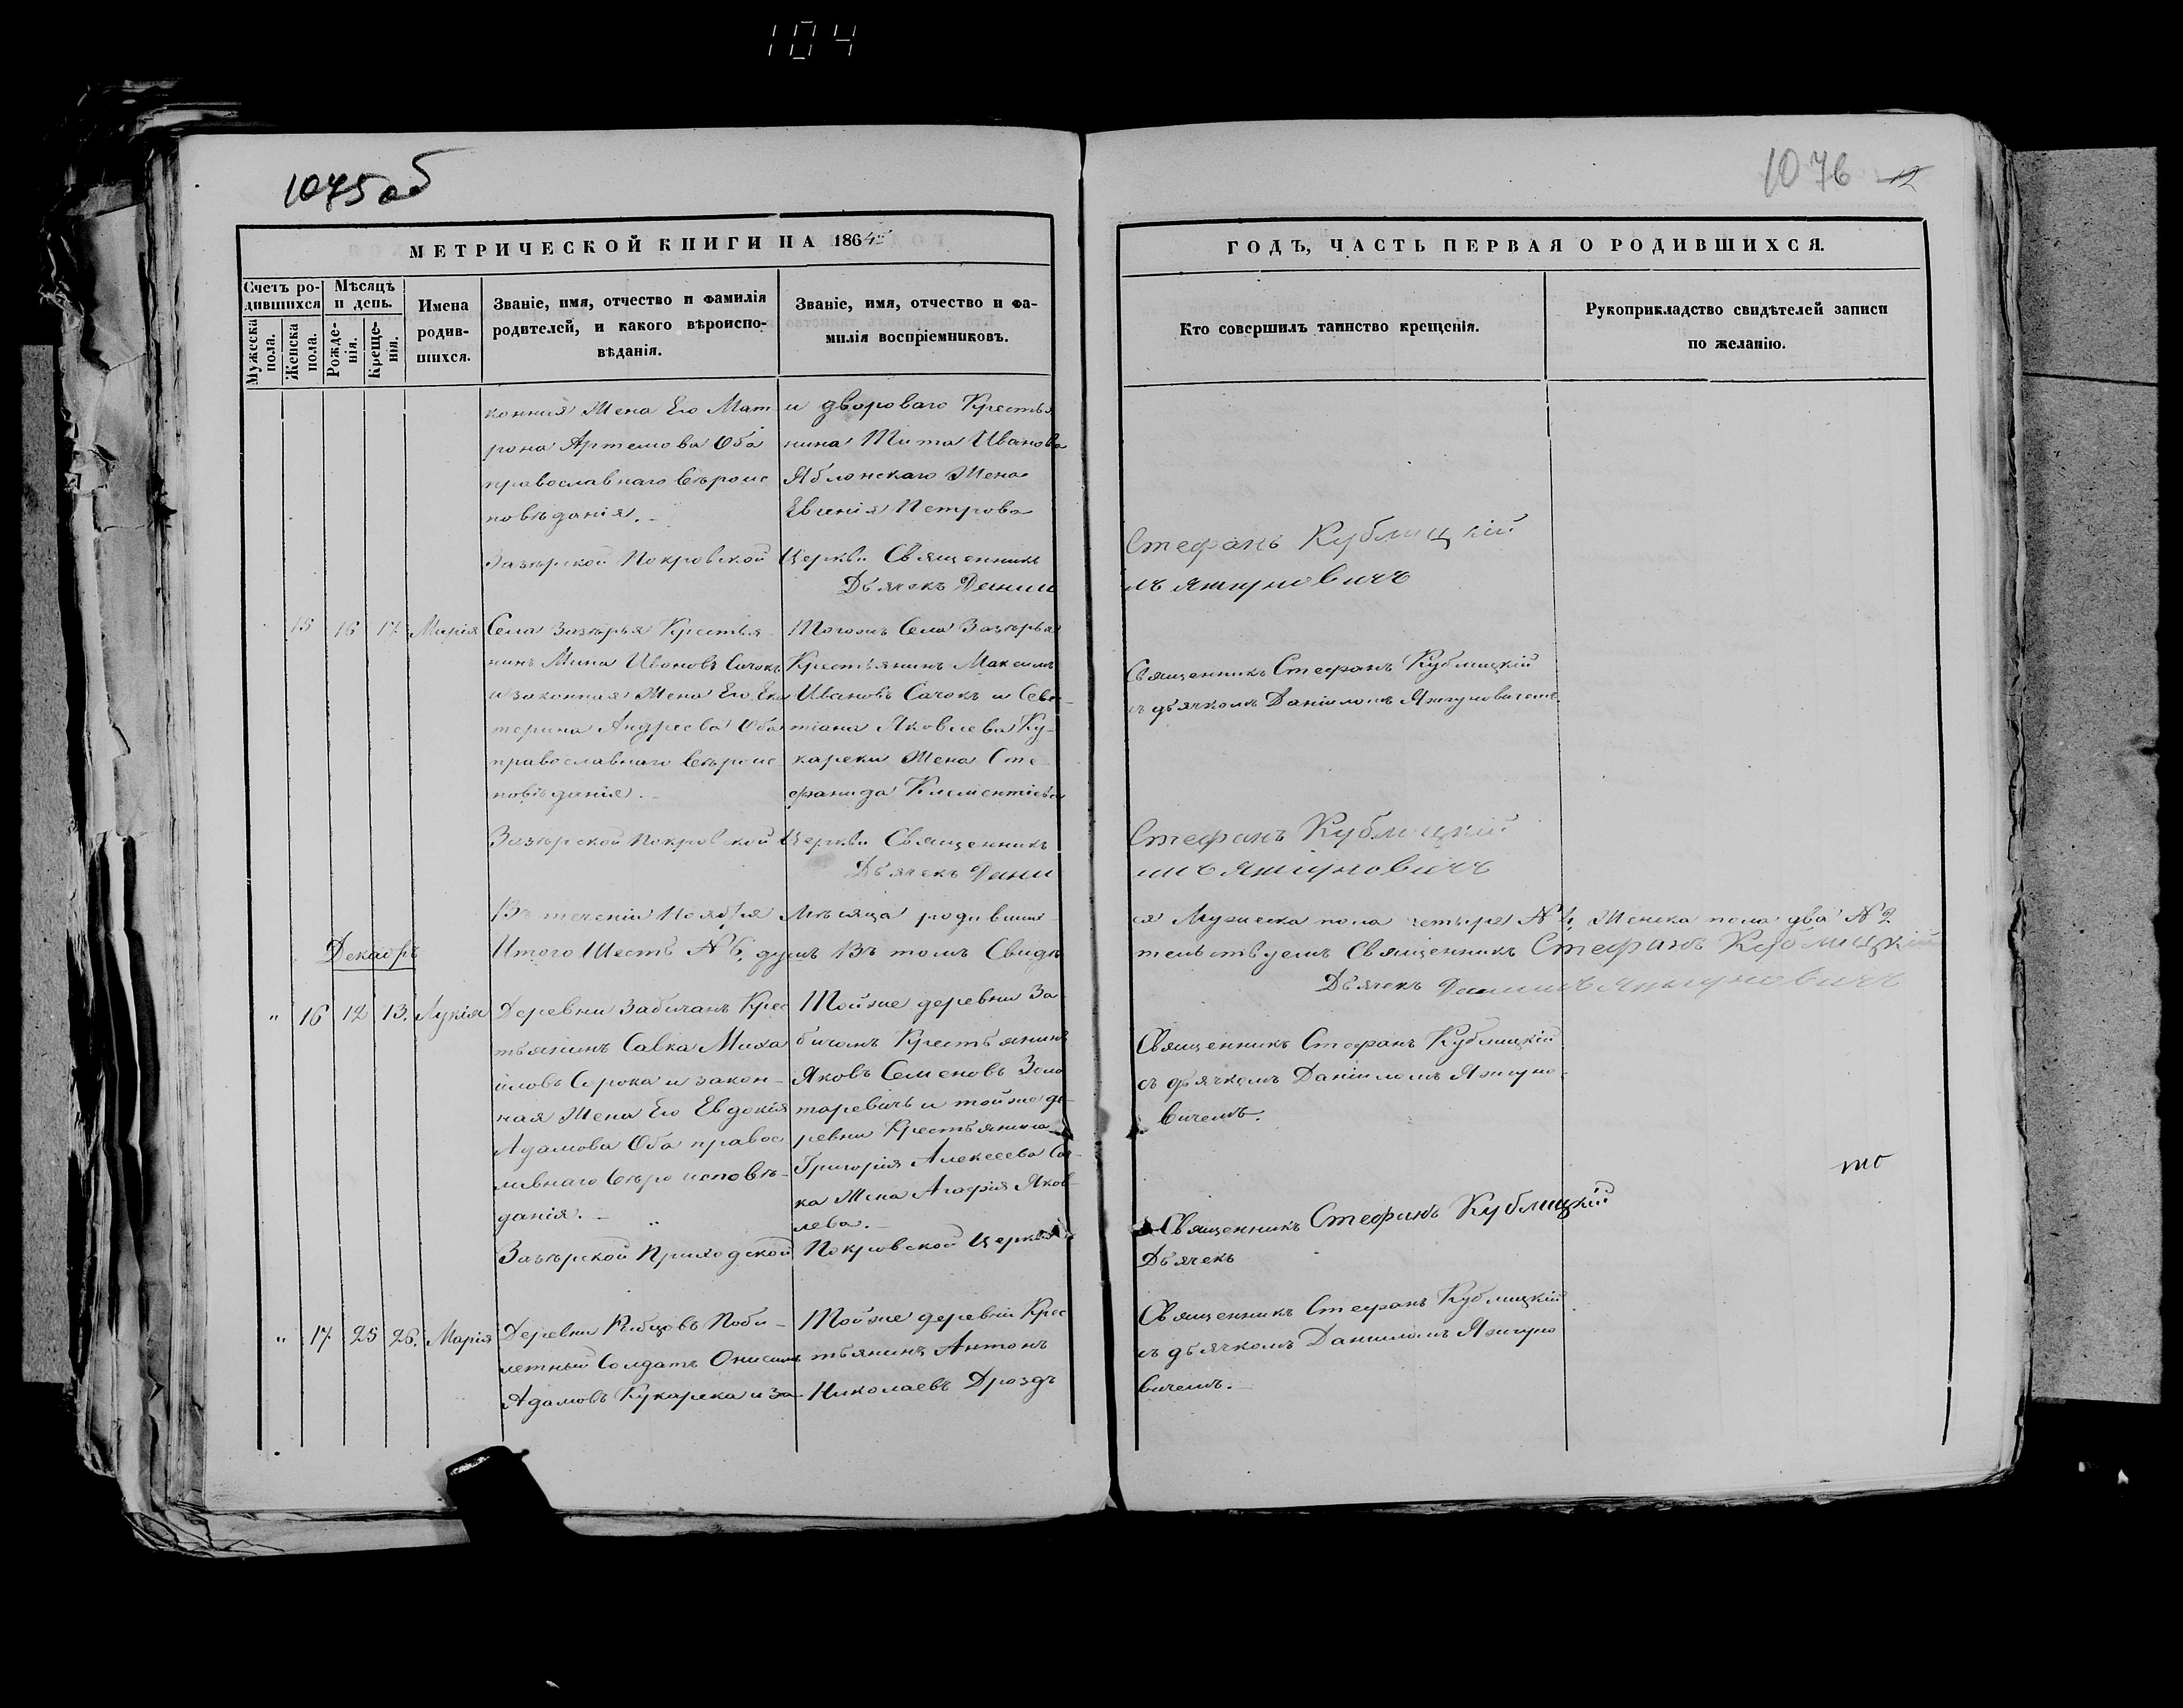 104
1075 об
1076 12
МЕТРИЧЕСКОЙ КНИГИ НА 1864й
ГОДЪ, ЧАСТЬ ПЕРВАЯ О РОДИВШИХСЯ.
Счетъ родившихся
Мужеска пола.
Женска пола.
Мѣсяцъ и день.
Рожденія.
Крещенія.
Имена родившихся.
Званіе, имя, отчество и фамилія
родителей, и какого вѣроиспо-
вѣданія.
Званіе, имя, отчество и фа-
милія воспріемниковъ.
Кто совершилъ таинство крещенія.
Рукоприкладство свидѣтелей записи
по желанію.
конная Жена Его Мат-
рона Артемова Оба
православнаго вѣроис
повѣданія.
и двороваго Крестья
нина Тита Иванова
Яблонскаго Жена
Евгенія Петрова
Зазѣрской Покровской Церкви Священникъ Стефанъ Кублицкій
Дьячекъ Данилъ Яжгуновичъ
15 16 17 Марія
Села Зазѣрья Крестья
нинъ Мина Ивановъ Сачокъ
и законная Жена Его Ека
терина Андреева Оба
православнаго вѣроис
повѣданія.
Тогожъ Села Зазѣрья
Крестьянинъ Максимъ
Ивановъ Сачокъ и Севе-
тіана Яковлева Ку-
кареки Жена Сте
фанида Клементіева
Священникъ Стефанъ Кублицкій
съ дьячкомъ Даніиломъ Яжгуновичемъ
Зазѣрской Покровской Церкви Священникъ Стефанъ Кублицкій
Дьячекъ Данилъ Яжгуновичъ
Въ теченіи Ноября Мѣсяца родивших-ся Мужеска пола четыре № 4, Женска пола два № 2
Итого Шесть № 6, душъ Въ томъ Свидѣтельствуемъ Священникъ Стефанъ Кублицкій
Дьячекъ Данилъ Яжгуновичъ
Декабрь
" 16 12 13. Лукія
Деревни Забичанъ Крес
тьянинъ Савка Миха
йловъ Сорока и закон-
ная Жена Его Евдокія
Адамова Оба правос
лавнаго вѣроисповѣ-
данія.
Тойже деревни За
бичанъ Крестьянинъ
Яковъ Семеновъ Золо
таревичъ и тойже де
ревни Крестьянина
Григорія Алексеева Сач-
ка Жена Агафія Яков
лева.
Священникъ Стефанъ Кублицкій
съ дьячкомъ Даніиломъ Яжгуно-
вичемъ.
Зазѣрской Приходской Покровской Церкви Священникъ Стефанъ Кублицкій
Дьячекъ
" 17 25 26. Марія
Деревни Рябцовъ
летный Солдатъ Онисимъ
Адамовъ Кукарека и за-
Тойже деревни Крес
тьянинъ Антонъ
Николаевъ Дроздъ
Священникъ Стефанъ Кублицкій
съ дьячкомъ Даниломъ Яжгуно
вичемъ.